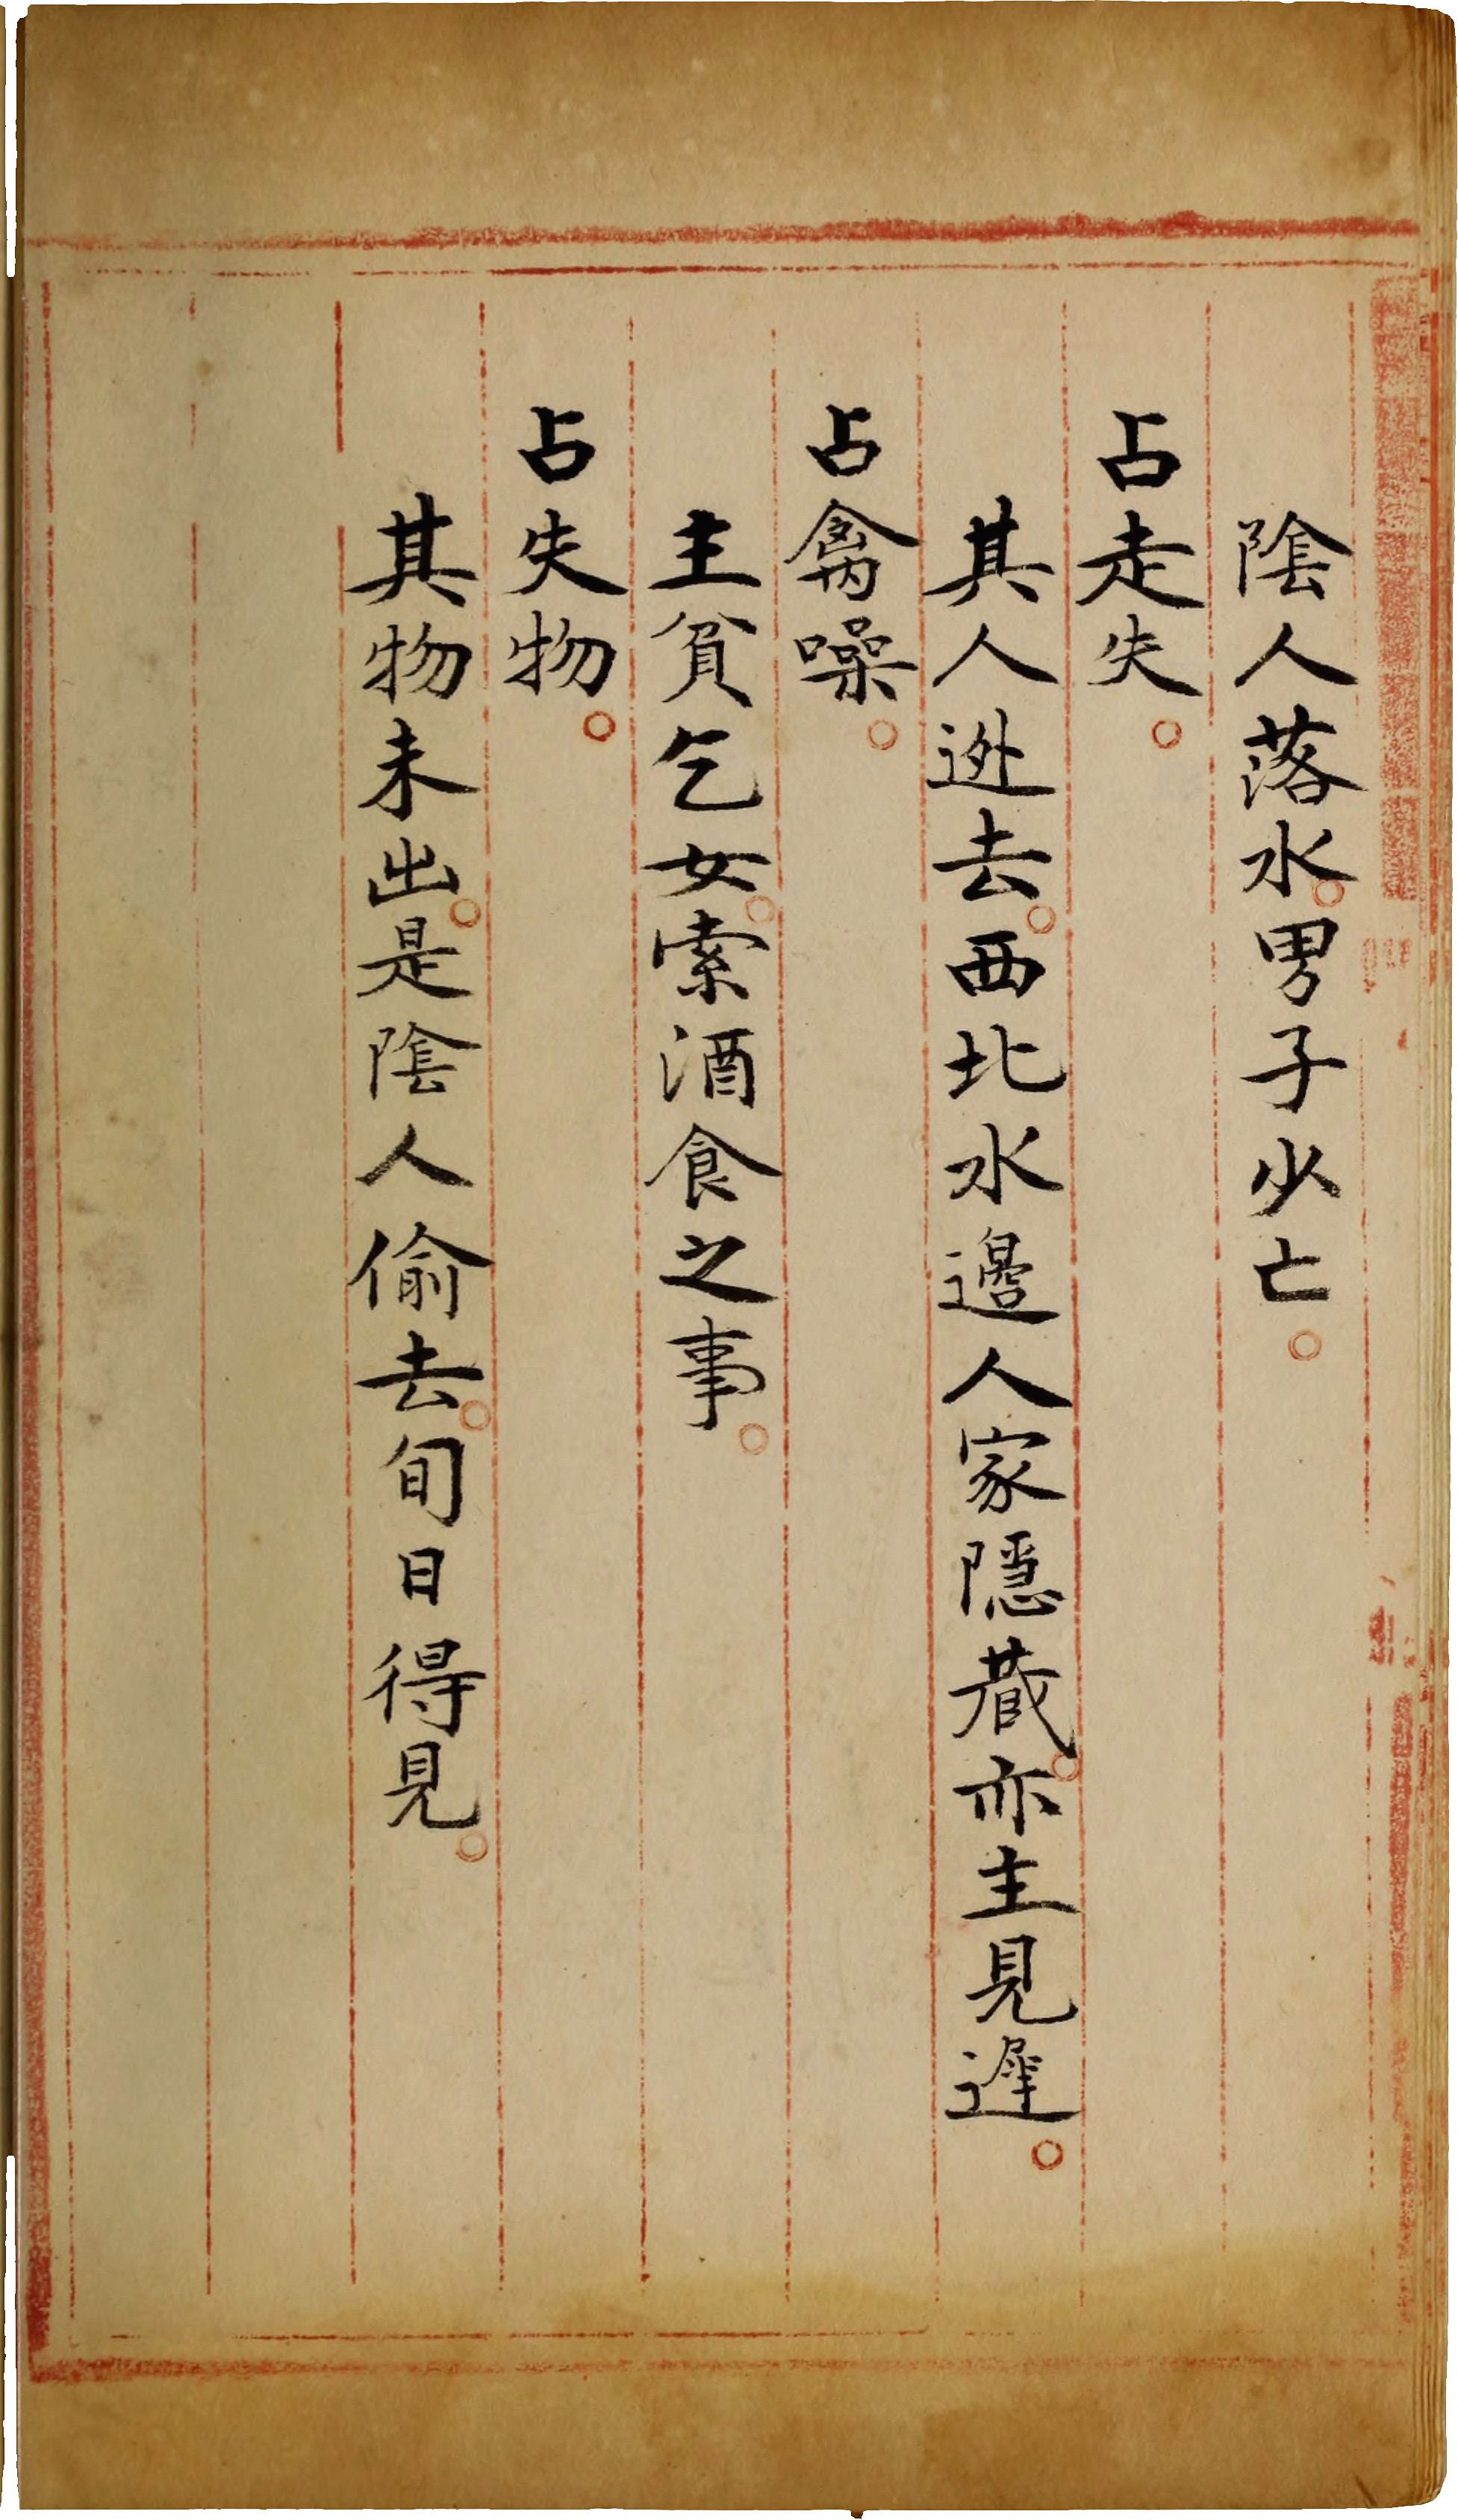 陰人落水。男子少亡。
占走失。
其人逃去。西北水邊人家隱藏。亦主見遲。
占禽噪。
主貧乞女。索酒食之事。
占失物。
其物未出。是陰人偷去。旬日得見。